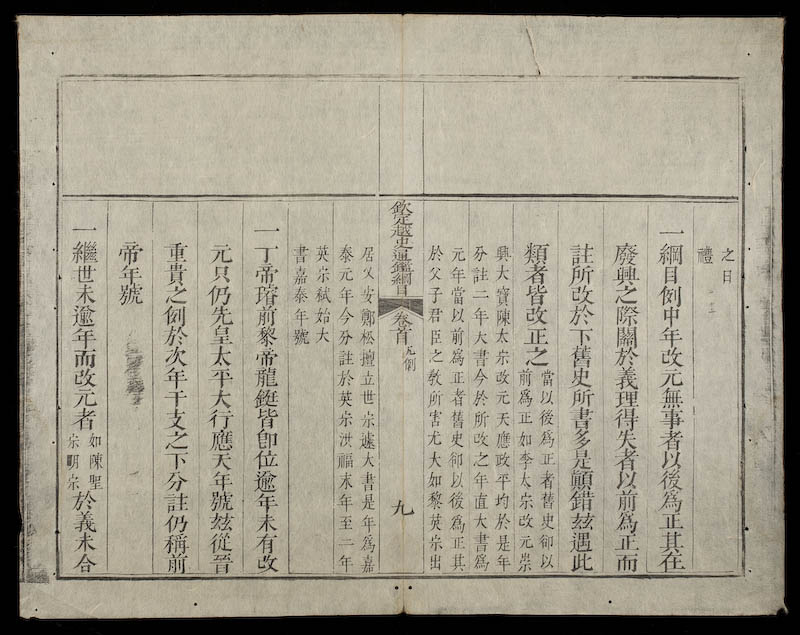 之日
禮
一綱目例中年改元無事者以後爲正其在
廢興之際關於義理得失者以前爲正而
註所改於下舊史所書多是顚錯玆遇此
類者皆改正之
當以後爲正者舊史卻以
前爲正如李太宗改元崇
興大寶陳太宗改元天應政平均於是年
分註二年大書今於所改之年直大書爲
元年當以前爲正者舊史卻以後爲正其
於父子君臣之敎所害尤大如黎英宗出
欽定越史通鑑綱目 卷首 凡例 九
居乂安鄭松擅立世宗遽大書是年爲嘉
泰元年今分註於英宗洪福末年至二年
英宗弒始大
書嘉泰年號
一丁帝璿前黎帝龍鋌皆卽位逾年未有改
元只仍先皇太平大行應天年號玆從晉
重貴之例於次年干支之下分註仍稱前
帝年號
一繼世未逾年而改元者
如陳聖
宗明宗
於義未合